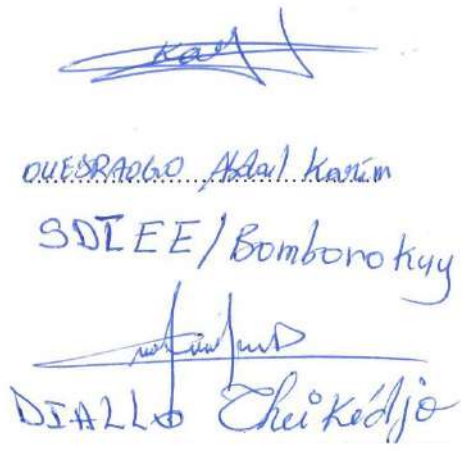 Kay
OUEDRAOGO Abdal Karim
SDIEE/Bomborokuy
DIALLO Cheikédjo